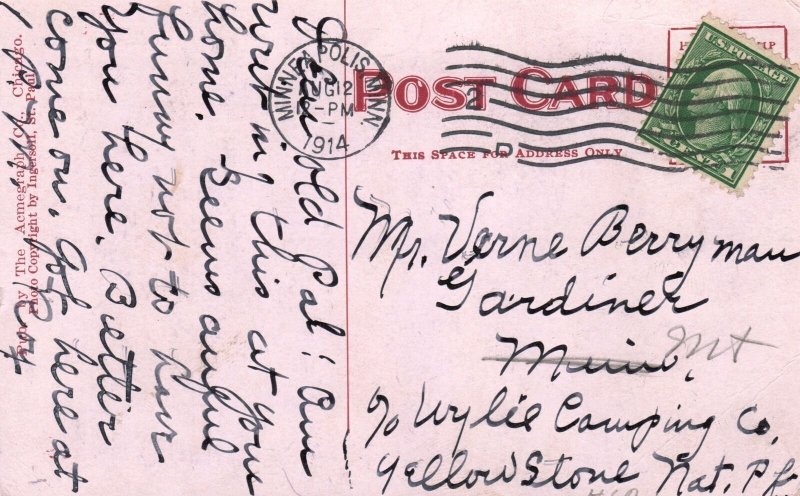 Dear old Pal: Am
writing this at your
home. Seems awful
funny not to have
you here. Better
come on. Got here at
Pub. by The Acmegraph Co., Chicago.
Photo Copyright by Ingerson, St. Paul.
MINNEAPOLIS, MINN
AUG 12
-PM
1914
POST CARD
THIS SPACE FOR ADDRESS ONLY
U.S. POSTAGE
CENTS 1
Mr. Verne Berryman
Gardiner
Minn. Mt
c/o Wylie Camping Co.
Yellow Stone Nat. Pk